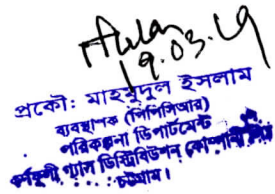 19.03.19
প্রকৌ: মাহমুদুল ইসলাম
ব্যবস্থাপক (পিসিপিআর)
পরিকল্পনা ডিপার্টমেন্ট
কর্ণফুলী গ্যাস ডিস্ট্রিবিউশন কোম্পানী লিঃ
চট্টগ্রাম।